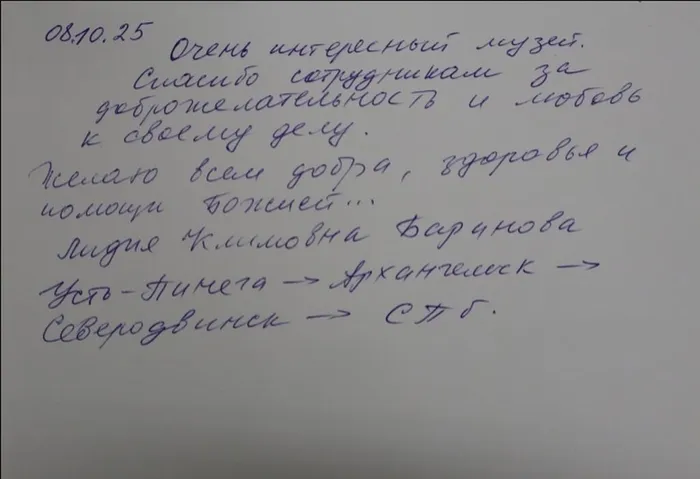 08.10.25
Очень интересный музей.
Спасибо сотрудникам за
доброжелательность и любовь
к своему делу.
Желаю всем добра, здоровья и
помощи Божией...
Лидия Климовна Баринова
Усть-Пинега → Архангельск →
Северодвинск → СПб.